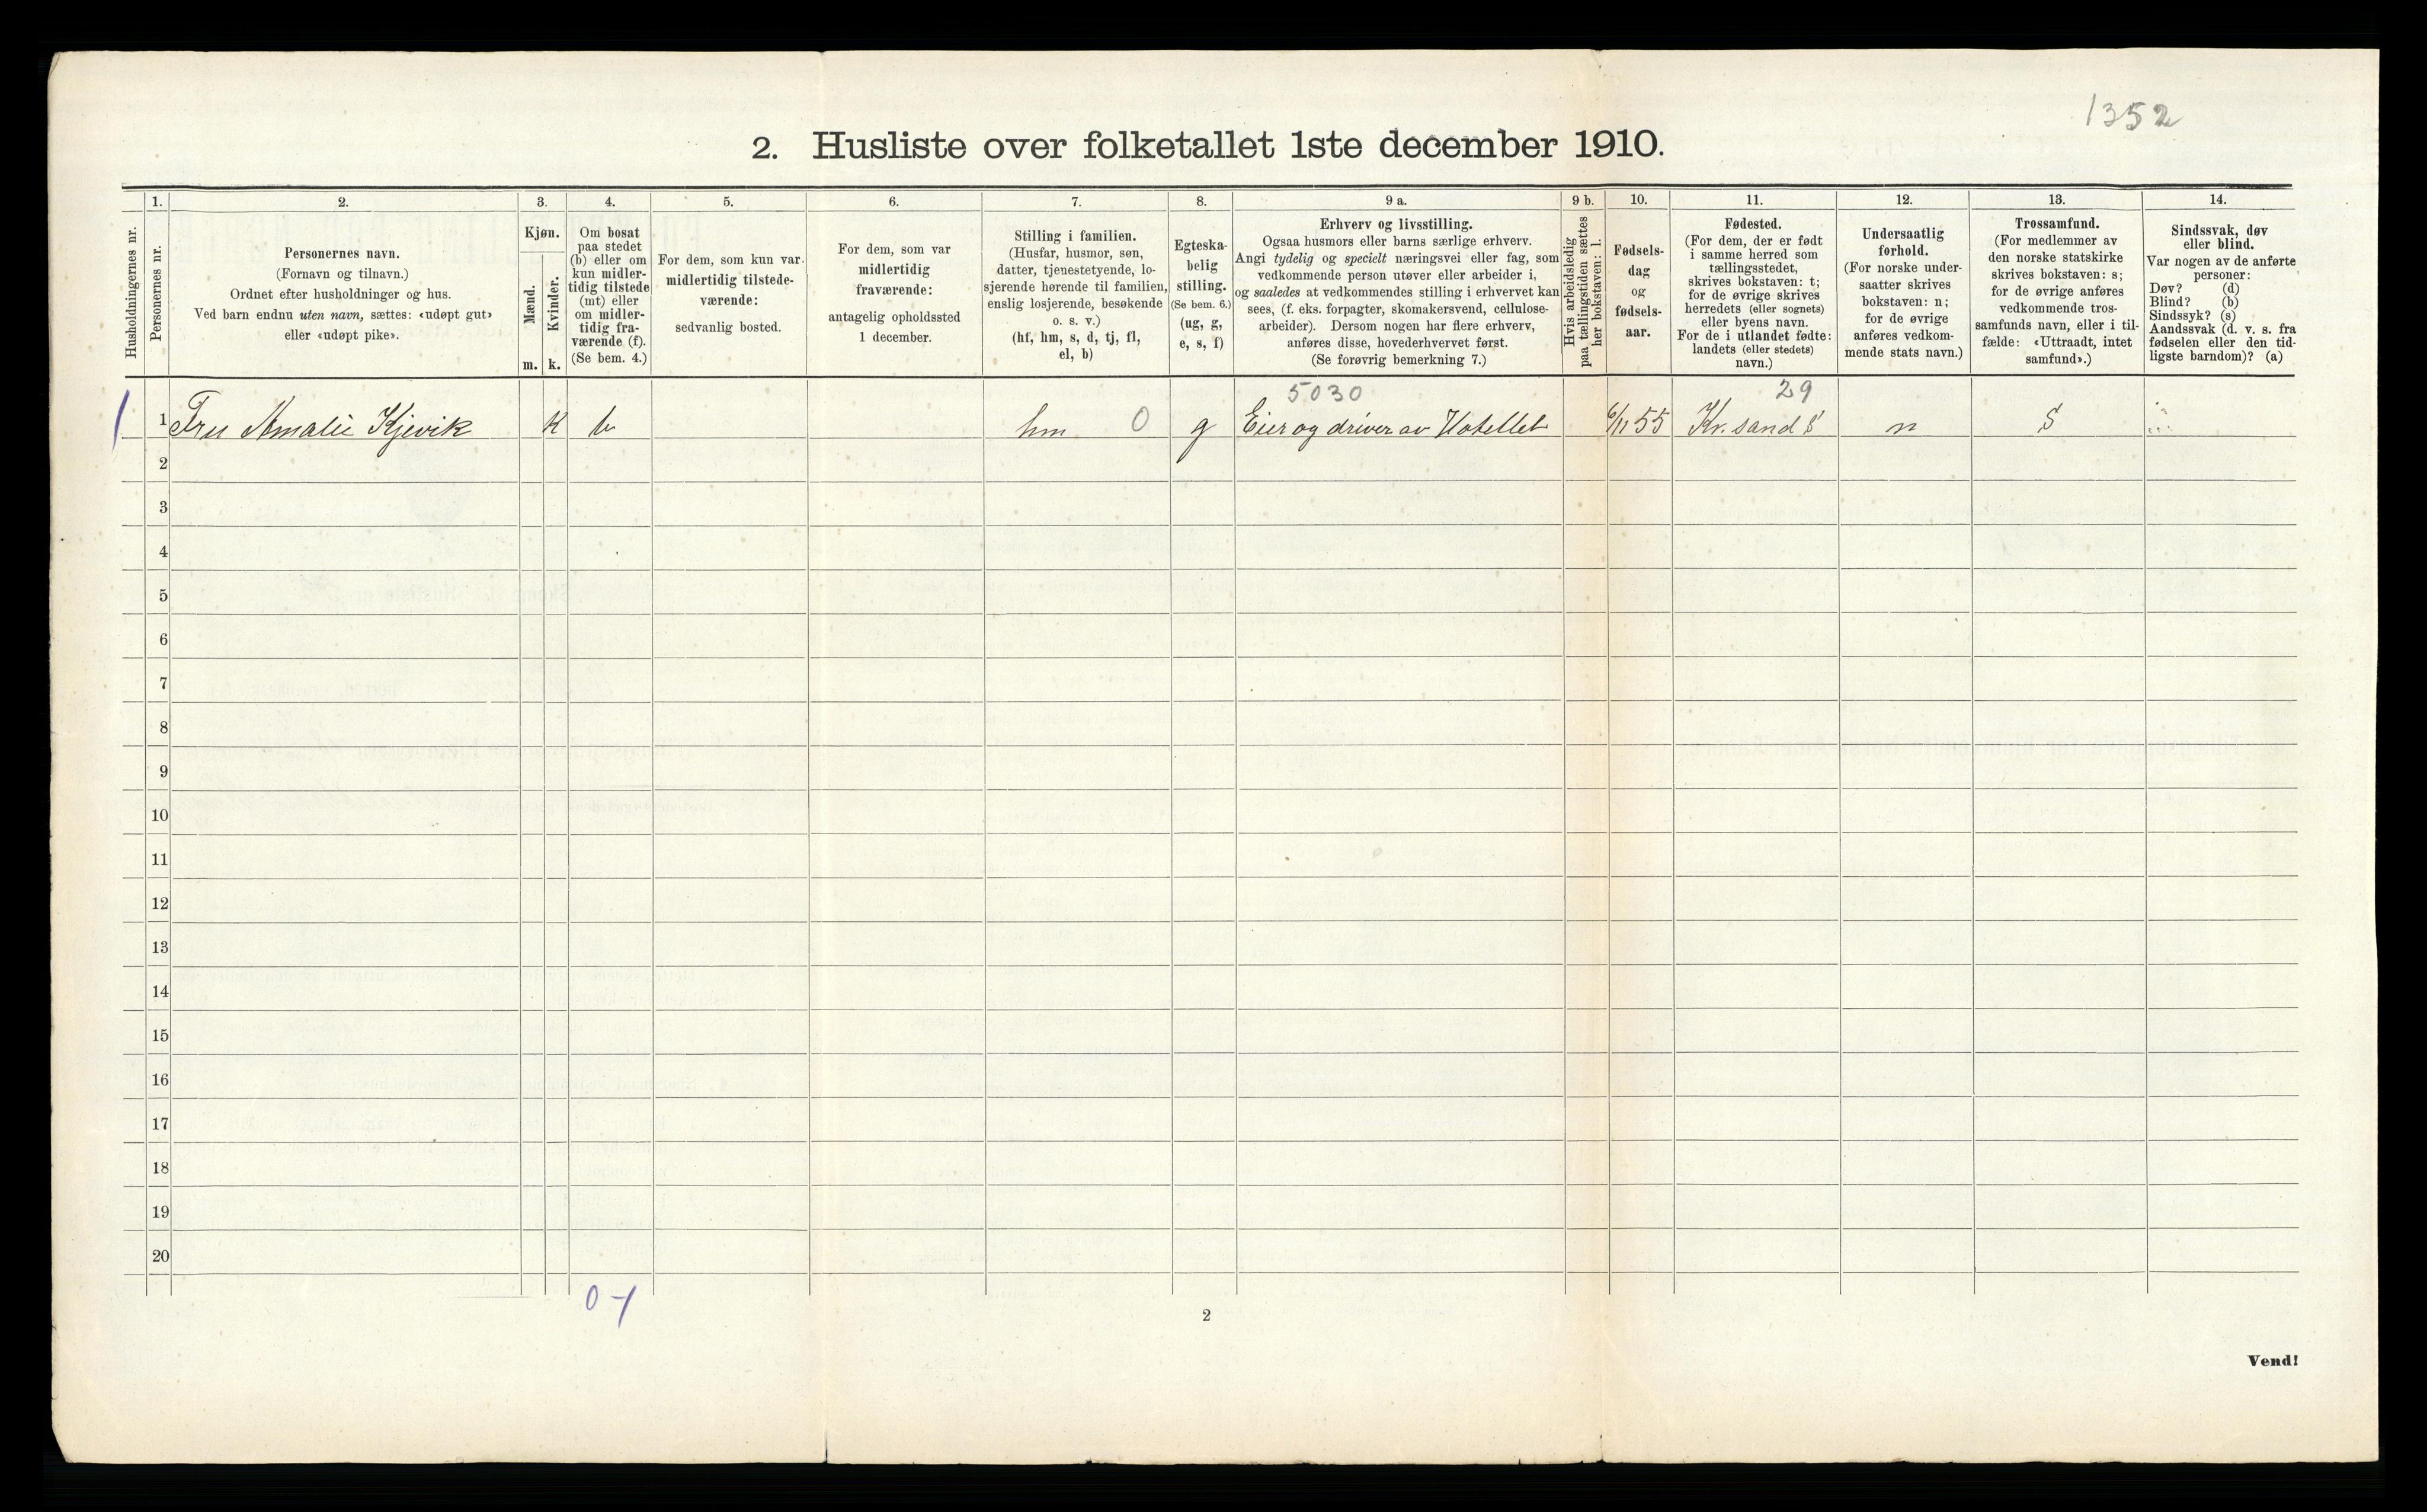 1352
2. Husliste over folketallet 1ste december 1910.
Husholdningernes nr.
1.
Personernes nr.
2.
Personernes navn.
(Fornavn og tilnavn.)
Ordnet efter husholdninger og hus.
Ved barn endnu uten navn, sættes: «udøpt gut»
eller «udøpt pike».
3.
Kjøn.
Mænd.
Kvinder.
m. k.
4.
Om bosat
paa stedet
(b) eller om
kun midler-
tidig tilstede
(mt) eller
om midler-
tidig fra-
værende (f).
(Se bem. 4.)
5.
For dem, som kun var
midlertidig tilstede-
værende:
sedvanlig bosted.
6.
For dem, som var
midlertidig
fraværende:
antagelig opholdssted
1 december.
7.
Stilling i familien.
(Husfar, husmor, søn,
datter, tjenestetyende, lo-
sjerende hørende til familien,
enslig losjerende, besøkende
o. s. v.)
(hf, hm, s, d, tj, fl,
el, b)
8.
Egteska-
belig
stilling.
(Se bem. 6.)
(ug, g,
e, s, f)
9 a.
Erhverv og livsstilling.
Ogsaa husmors eller barns særlige erhverv.
Angi tydelig og specielt næringsvei eller fag, som
vedkommende person utøver eller arbeider i,
og saaledes at vedkommendes stilling i erhvervet kan
sees, (f. eks. forpagter, skomakersvend, cellulose-
arbeider). Dersom nogen har flere erhverv,
anføres disse, hovederhvervet først.
(Se forøvrig bemerkning 7.)
9 b.
Hvis arbeidsledig
paa tællingstiden sættes
her bokstaven: l.
10.
Fødsels-
dag
og
fødsels-
aar.
11.
Fødested.
(For dem, der er født
i samme herred som
tællingsstedet,
skrives bokstaven: t;
for de øvrige skrives
herredets (eller sognets)
eller byens navn.
For de i utlandet fødte:
landets (eller stedets)
navn.)
12.
Undersaatlig
forhold.
(For norske under-
saatter skrives
bokstaven: n;
for de øvrige
anføres vedkom-
mende stats navn.)
13.
Trossamfund.
(For medlemmer av
den norske statskirke
skrives bokstaven: s;
for de øvrige anføres
vedkommende tros-
samfunds navn, eller i til-
fælde: «Uttraadt, intet
samfund».)
14.
Sindssvak, døv
eller blind.
Var nogen av de anførte
personer:
Døv? (d)
Blind? (b)
Sindssyk? (s)
Aandssvak (d. v. s. fra
fødselen eller den tid-
ligste barndom)? (a)
5030 29
1 1 Fru Amalie Kjevik K b hm 0 g Eier og driver av Hotellet 6/11 55 Kr.sand S n S
2
3
4
5
6
7
8
9
10
11
12
13
14
15
16
17
18
19
20
0-1
2
Vend!